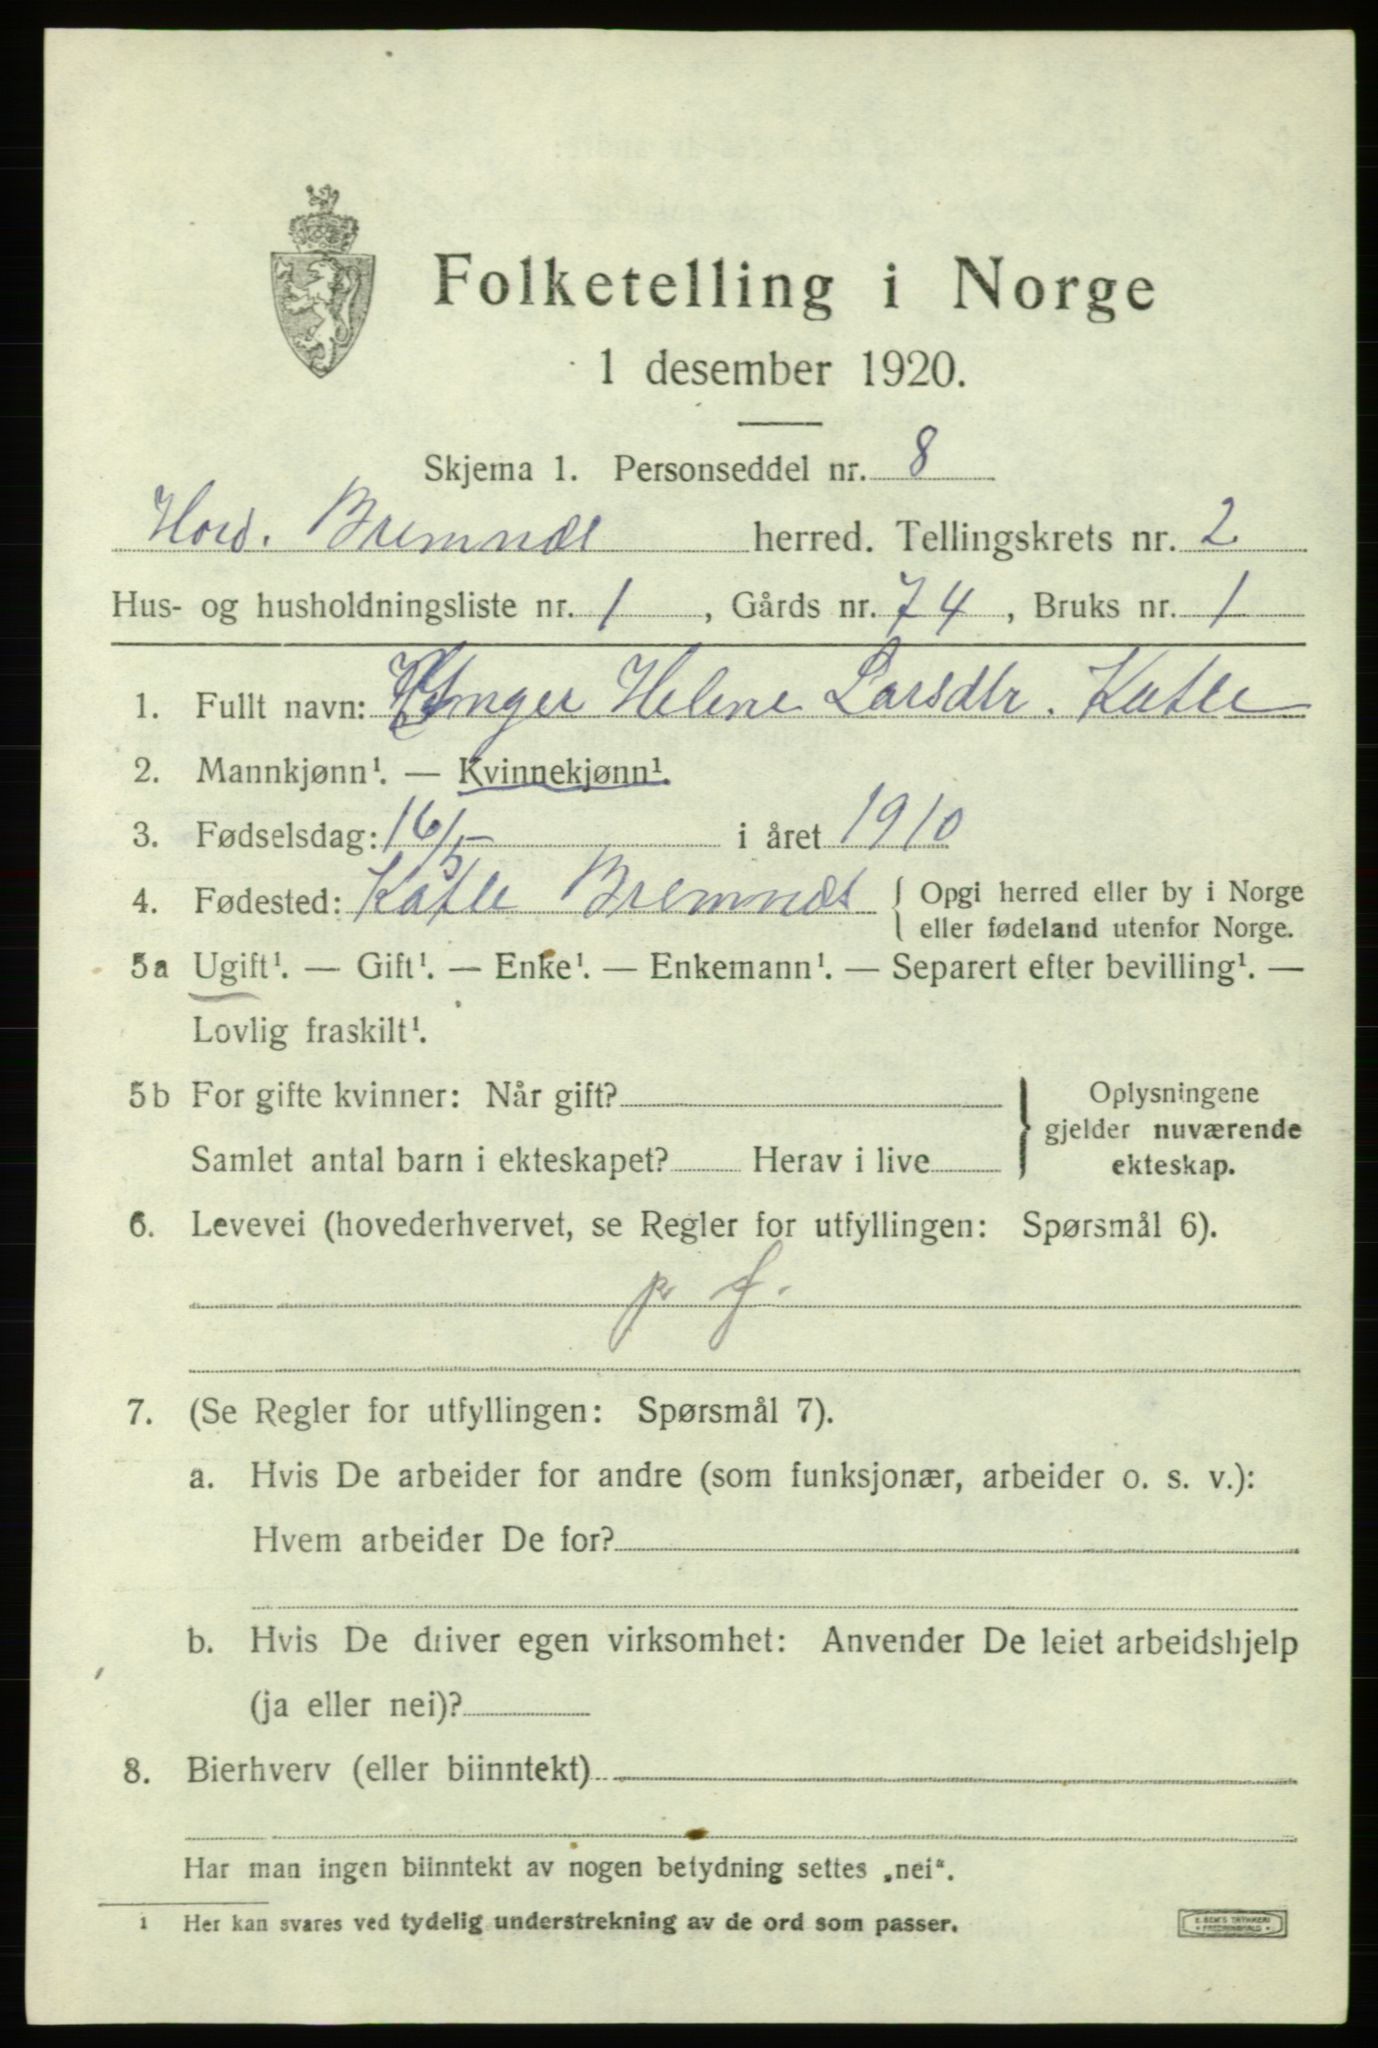 Folketelling i Norge
1 desember 1920.
Skjema 1. Personseddel nr. 8
Hord. Bremnes herred. Tellingskrets nr. 2
Hus- og husholdningsliste nr. 1, Gårds nr. 74, Bruks nr. 1
1. Fullt navn: Inger Helene Larsdtr. Katle
2. Mannkjønn¹. — Kvinnekjønn¹.
3. Fødselsdag: 16/5 i året 1910
4. Fødested: Katle Bremnes { Opgi herred eller by i Norge
eller fødeland utenfor Norge.
5a Ugift¹. — Gift¹. — Enke¹. — Enkemann¹. — Separert efter bevilling¹. —
Lovlig fraskilt¹.
5b For gifte kvinner: Når gift?
Samlet antal barn i ekteskapet? Herav i live
} Oplysningene
gjelder nuværende
ekteskap.
6. Levevei (hovederhvervet, se Regler for utfyllingen: Spørsmål 6).
p f.
7. (Se Regler for utfyllingen: Spørsmål 7).
a. Hvis De arbeider for andre (som funksjonær, arbeider o. s. v.):
Hvem arbeider De for?
b. Hvis De driver egen virksomhet: Anvender De leiet arbeidshjelp
(ja eller nei)?
8. Bierhverv (eller biinntekt)
Har man ingen biinntekt av nogen betydning settes „nei“.
1 Her kan svares ved tydelig understrekning av de ord som passer.